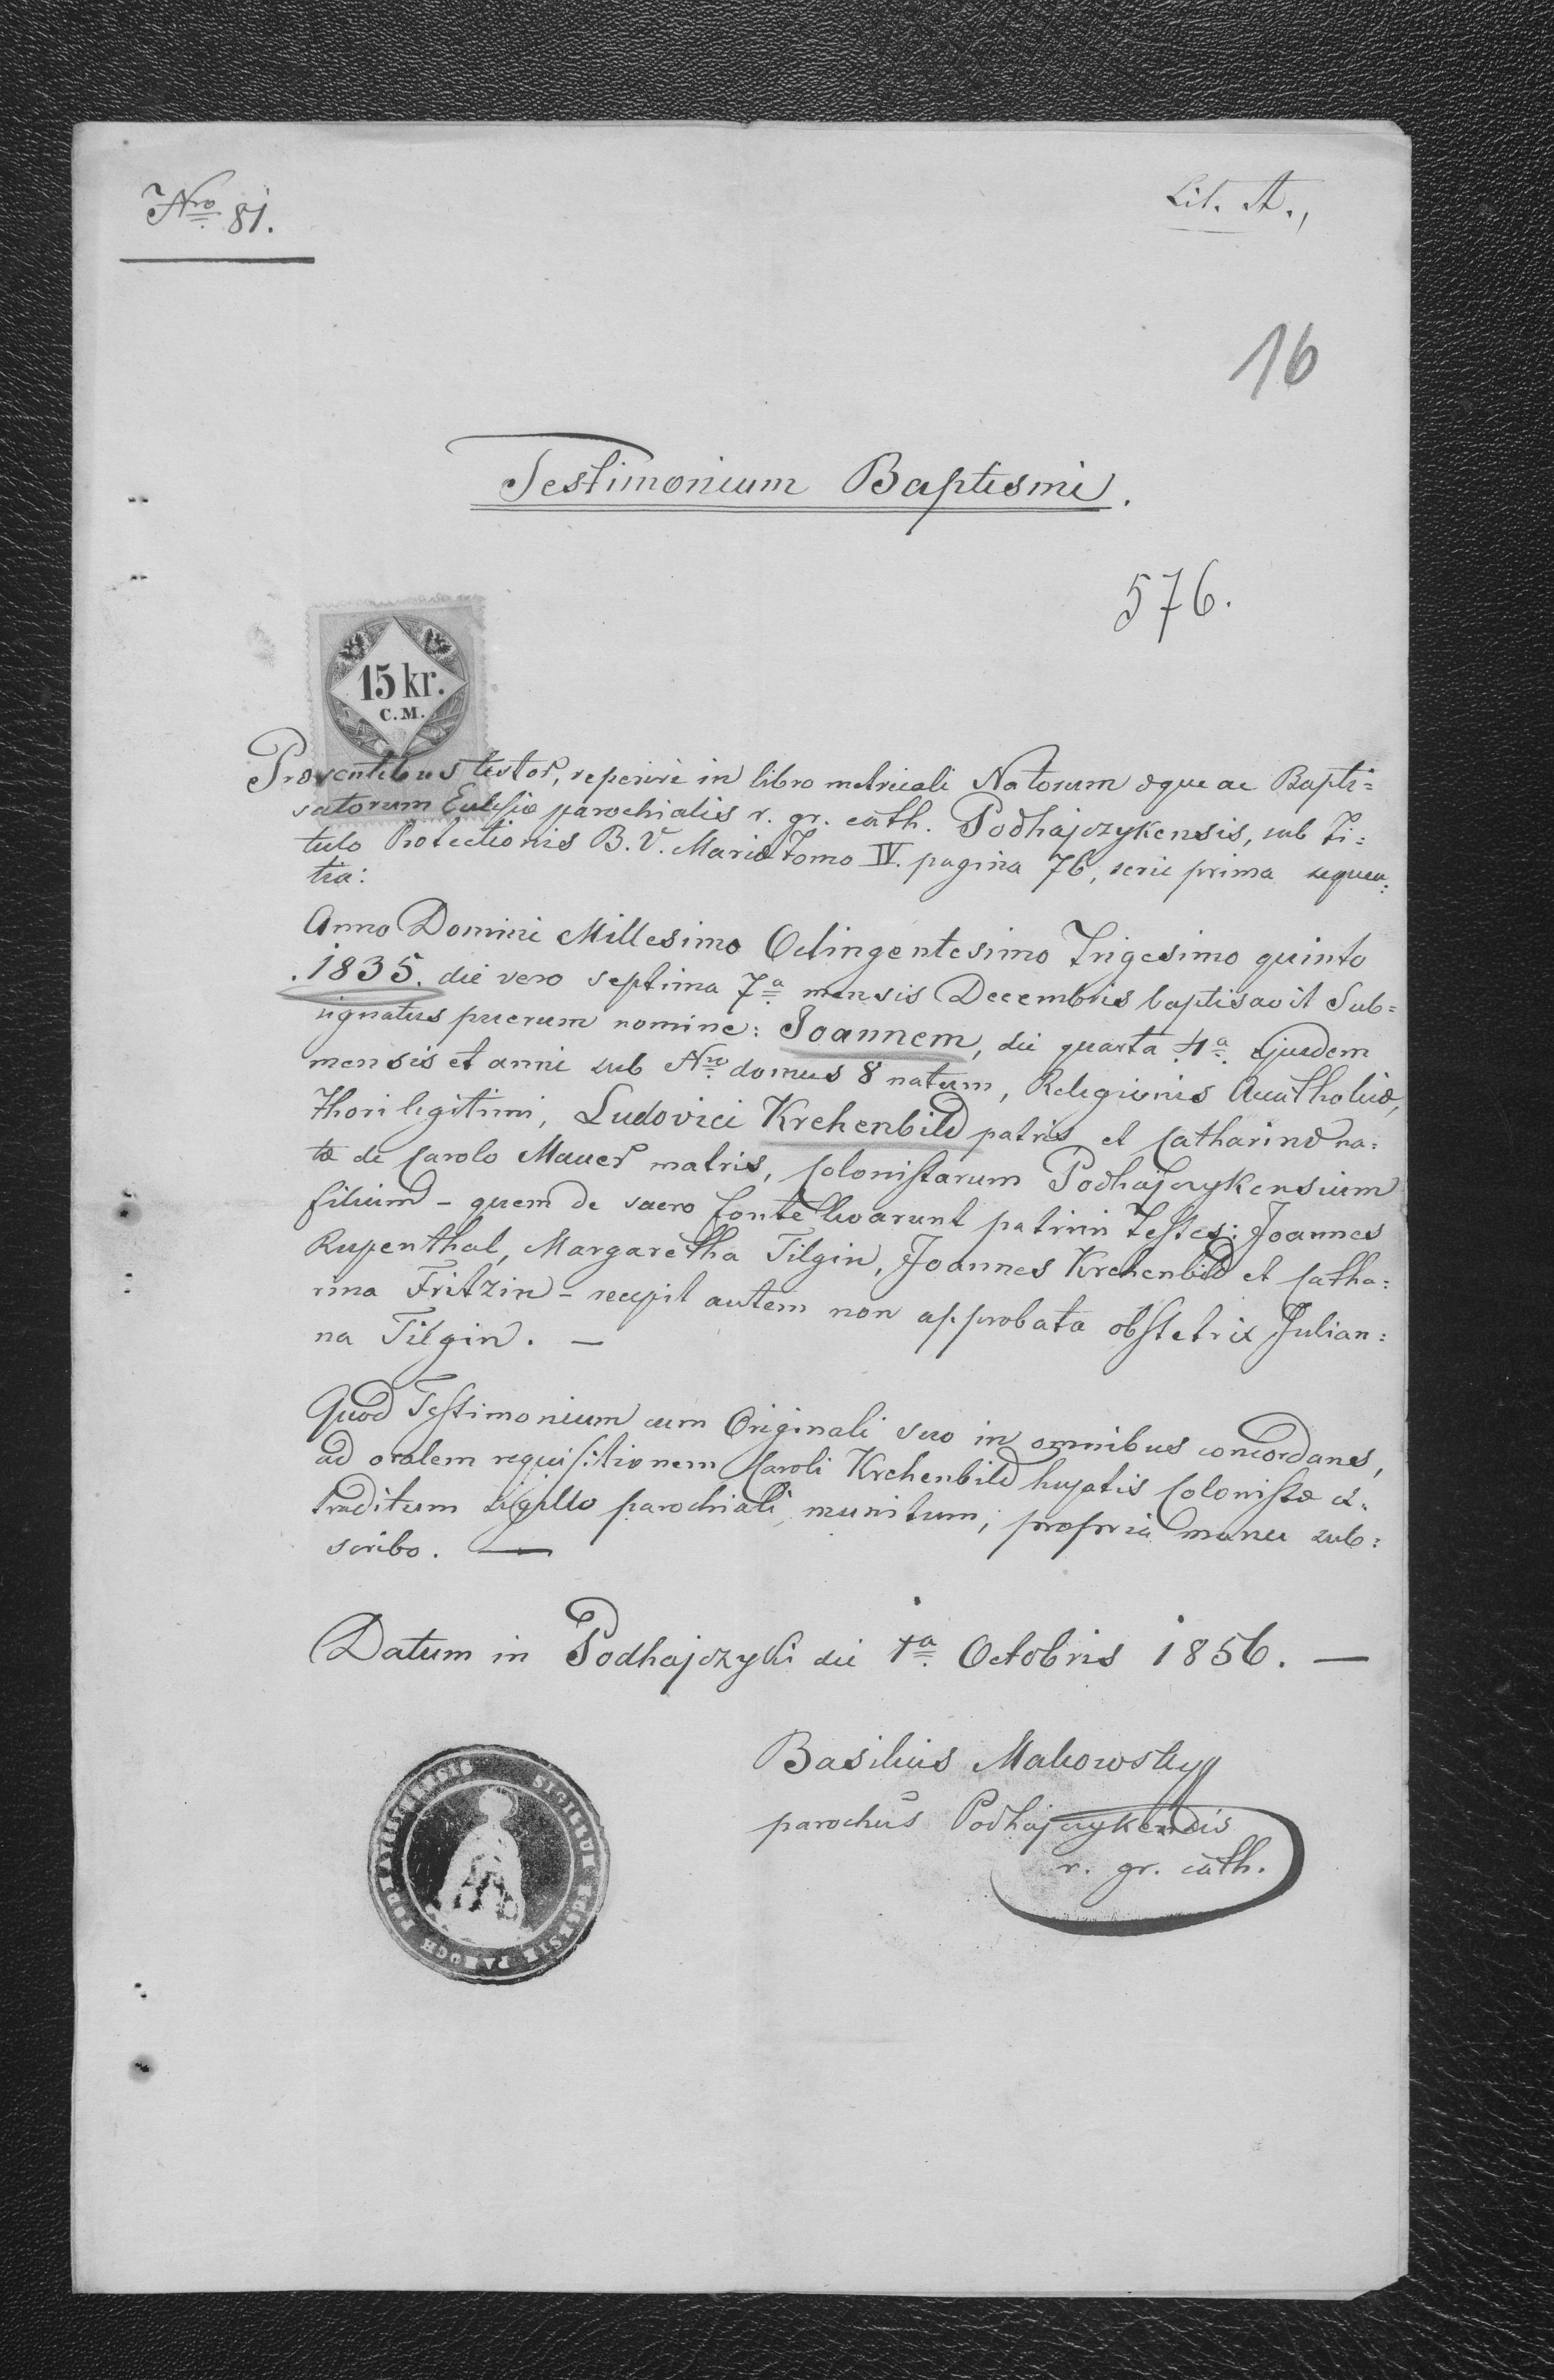 Nro 81.
Lit. A.,
16
Testimonium Baptismi.
576.
15 kr.
C.M.
Præsentibus testor, reperiri in libro metricali Natorum æque ac Bapti=
satorum Eclesiæ parochialis r. gr. cath. Podhajczykensis, sub Ti=
tulo Protectionis B. V. Mariæ Tomo IV. pagina 76, serie prima sequen=
tia:
Anno Domini Millesimo Octingentesimo Trigesimo quinto
.1835. die vero septima 7a mensis Decembris baptisavit Sub=
signatus puerum nomine: Joannem, die quarta 4a ejusdem
mensis et anni sub Nro domus 8 natum, Religionis Acatholicæ,
Thori legitimi, Ludovici Krehenbild patris et Catharinæ na=
tæ de Carolo Mauer matris, Colonistarum Podhajczykensium
filium - quem de sacro fonte levarunt patrini Testes: Joannes
Rupenthal, Margaretha Tilgin, Joannes Krehenbild et Catha=
rina Fritzin - recepit autem non approbata obstetrix Julian=
na Tilgin. —
Quod Testimonium cum Originali suo in omnibus concordans,
ad oralem requisitionem Caroli Krehenbild hujatis Colonistæ ex=
traditum sigillo parochiali munitum, propria manu sub=
scribo. —
Datum in Podhajczyki die 1a Octobris 1856. —
Basilius Makowskyy
parochus Podhajczykensis
r. gr. cath.